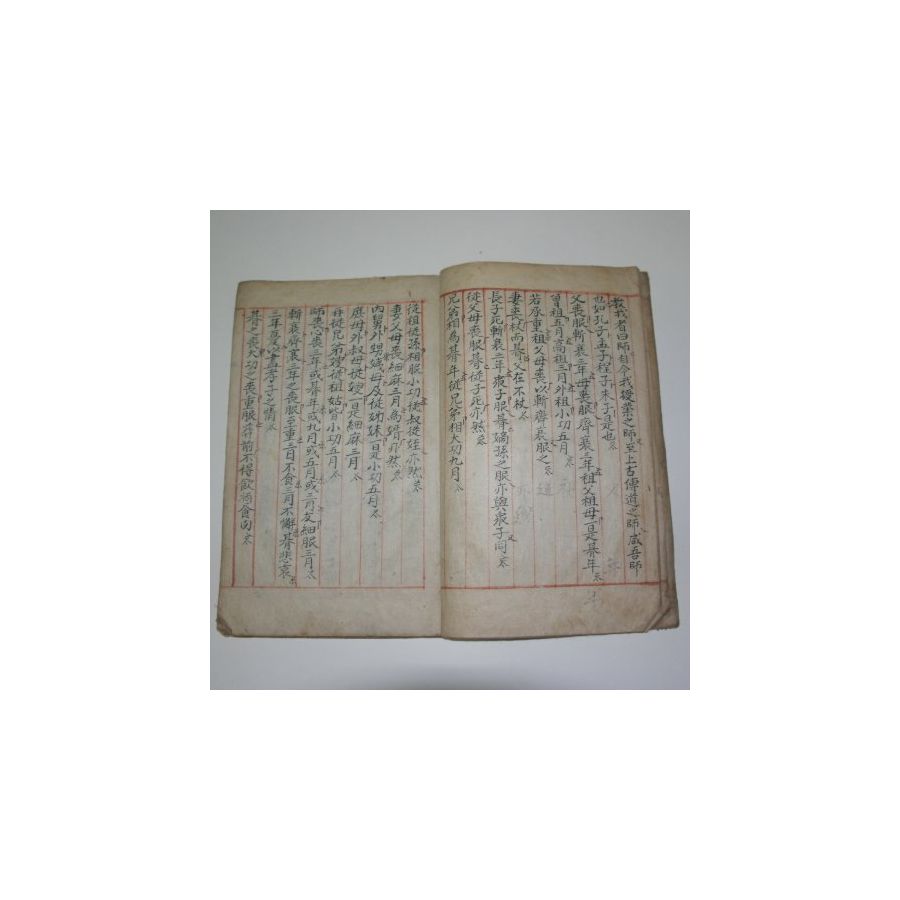 教我者曰師自今我授業之師至上古傳道之師咸吾師
也如孔子孟子程子朱子是也
父喪服斬衰三年母喪服齊衰三年祖父祖母皆是朞年
曾祖五月高祖三月外祖小功五月
若承重祖父母喪以斬齊衰服之
妻喪杖而朞父在不杖
長子死斬衰三年衆子服朞嫡孫之服亦與衆子同
從父母喪服朞從子死亦然
兄弟相為朞年從兄弟相大功九月
從祖從孫相服小功從叔從姪亦然
妻父母喪緦麻三月為壻亦然
內舅外甥姨母及從姉妹皆是小功五月
庶母外叔母從嫂皆是緦麻三月
再從兄弟從祖姑皆小功五月
師喪心喪三年或朞年或九月或五月或三月友緦服三月
斬衰齊衰三年之喪服至重三日不食三月不懈朞悲哀
三年憂孝子之情
朞之喪大功之喪重服葬前不得飲酒食肉